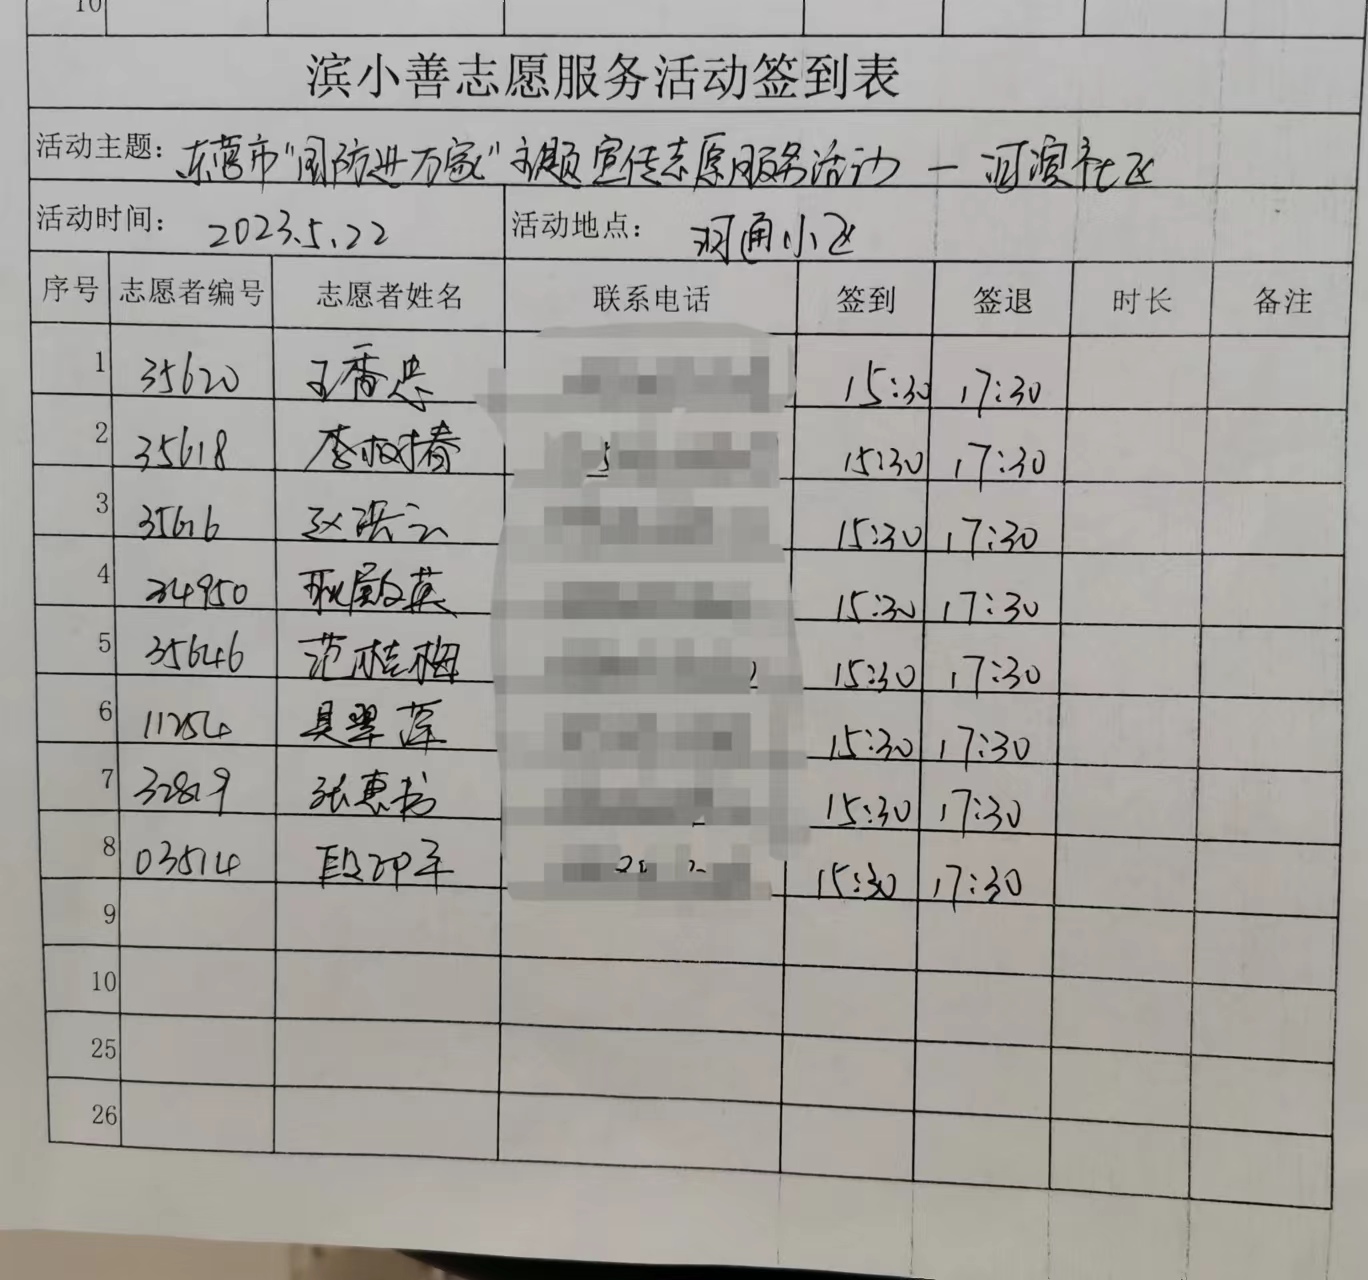 10
滨小善志愿服务活动签到表
活动主题: 东营市"国防进万家"主题宣传志愿服务活动 — 河滨社区
活动时间: 2023.5.22 活动地点: 河通小区
序号 志愿者编号 志愿者姓名 联系电话 签到 签退 时长 备注
1 35620 王香忠 15:30 17:30
2 35618 李树春 15:30 17:30
3 35616 赵洪云 15:30 17:30
4 耿殿英 15:30 17:30
5 35646 范桂梅 15:30 17:30
6 翠莲 15:30 17:30
7 张惠书 15:30 17:30
8 03514 段 15:30 17:30
9
10
25
26